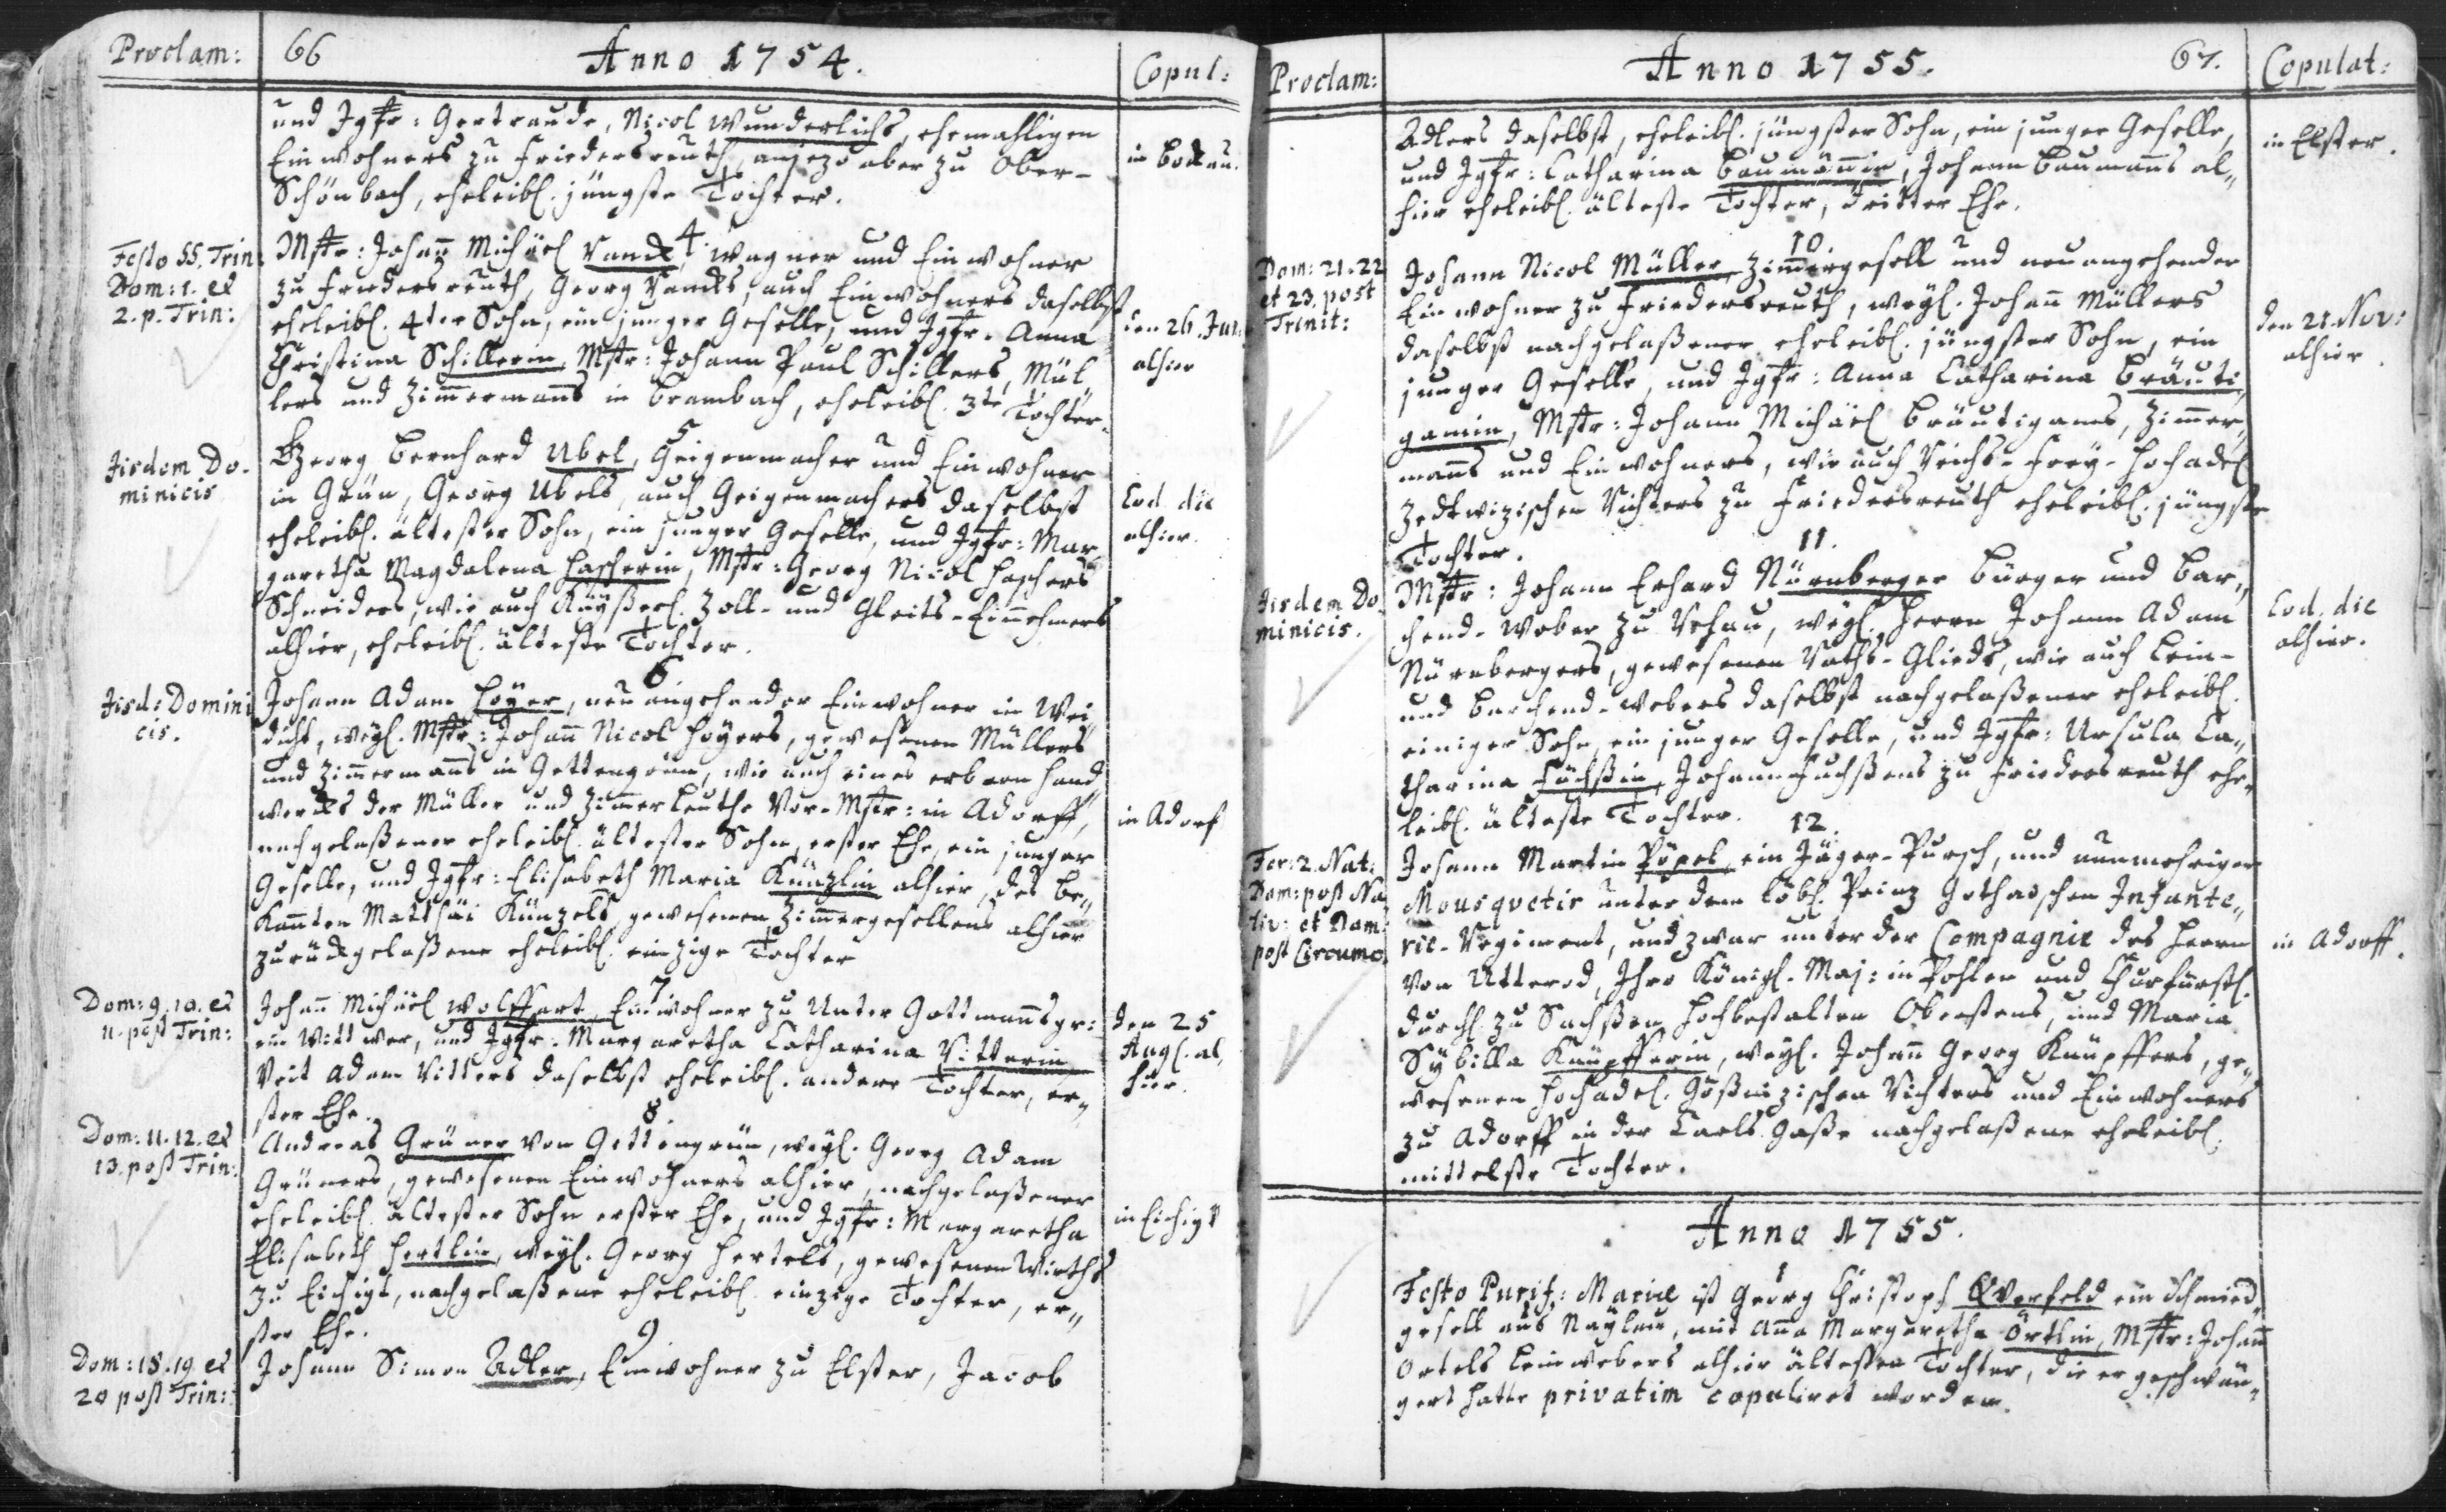 Proclam: 66 Anno 1754. Copul:
und Jgfr: Gertraude, Nicol Wunderlichs, ehemahligen
Einwohners zu Friedersreuth, anjezo aber zu Ober-
in Bockau.
Schönbach, eheleibl. jüngste Tochter.
4.
Festo SS. Trin:
Dom: 1. et
2. p. Trin:
Mstr: Johann Michäel Wagner und Einwohner
zu Friedersreuth, Georg auch Einwohners daselbst
eheleibl. 4ter Sohn, ein junger Geselle, und Jgfr. Anna
Christina Schillerin, Mstr: Johann Paul Schillers, Mül„
lers und Zimmermanns in Brambach, eheleibl. 3te Tochter.
den 26. Jun:
alhier
5
Iisdem Do-
minicis
Georg Bernhard Ubel, Geigenmacher und Einwohner
in Grün, Georg Ubels, auch Geigenmachers daselbst
eheleibl. ältester Sohn, ein junger Geselle, und Jgfr: Mar„
garetha Magdalena Hascherin, Mstr: Georg Nicol Haschers
Schneiders, wie auch Käyßerl. Zoll- und Gleits-Einnehmers
alhier, eheleibl. älteste Tochter.
Eod. die
alhier.
6
Iisd: Domini
cis.
Johann Adam Höyer, neu angehender Einwohner in Wei„
dicht, weyl. Mstr: Johann Nicol Höyers, gewesenen Müllers
und Zimmermanns in Gettengrün, wie auch eines erbarn Hand„
wercks der Müller und Zimmerleuthe Vor-Mstr: in Adorff,
nachgelaßener eheleibl. ältester Sohn, erster Ehe, ein junger
Geselle, und Jgfr: Elisabeth Maria Künzlin alhier, des be„
kannten Matthäi Künzels, gewesenen Zimmergesellens alhier
zurückgelaßene eheleibl. einzige Tochter
in Adorf
7
Dom: 9. 10. et
11. post Trin:
Johann Michäel Wolffart, Einwohner zu Unter Gottmannsgr:
ein Wittwer, und Jgfr: Margaretha Catharina Ritterin
Veit Adam Ritters daselbst eheleibl. andere Tochter, er„
ster Ehe.
den 25
Aug. al„
hier.
8
Dom: 11. 12. et
13. post Trin:
Andreas Grüner von Gettengrün, weyl. Georg Adam
Grüners, gewesenen Einwohners alhier, nachgelaßener
eheleibl. ältester Sohn erster Ehe, und Jgfr: Margaretha
Elisabeth Hertlin, weyl. Georg Hertels, gewesenen Wirths
zu Eichigt, nachgelaßene eheleibl. einzige Tochter, er„
ster Ehe.
in Eichigt
9
Dom: 18. 19. et
20 post Trin:
Johann Simon Adler, Einwohner zu Elster, Jacob
Proclam: Anno 1755. 67. Copulat:
Adlers daselbst, eheleibl. jüngster Sohn, ein junger Geselle,
und Jgfr: Catharina Baumännin, Johann Baumanns al„
hier eheleibl. älteste Tochter, dritter Ehe.
in Elster.
10.
Dom: 21. 22
et 23. post
Trinit:
Johann Nicol Müller, Zimmergesell und neu angehender
Einwohner zu Friedersreuth, weyl. Johann Müllers
daselbst nachgelaßener eheleibl. jüngster Sohn, ein
junger Geselle, und Jgfr: Anna Catharina Bräuti„
gamin, Mstr: Johann Michäel Bräutigams, Zimmer„
manns und Einwohners, wie auch Reichs-Frey-Hochadel
Zedtwizischen Richters zu Friedersreuth eheleibl. jüngste
Tochter.
den 21. Nov:
alhier.
11.
Iisdem Do
minicis.
Mstr: Johann Erhard Nürnberger Bürger und Bar„
chend-Weber zu Rehau, weyl. Herrn Johann Adam
Nürnbergers, gewesenen Raths-Glieds, wie auch Lein-
und Barchend-Webers daselbst nachgelaßener eheleibl.
einiger Sohn, ein junger Geselle, und Jgfr: Ursula Ca„
tharina Füchßin, Johann Fuchßens zu Friedersreuth ehe„
leibl. älteste Tochter.
Eod. die
alhier.
12.
Fer: 2. Nat:
Dom: post Na
tiv: et Dom:
post Circumc.
Johann Martin Pöpel, ein Jäger-Pursch, und nunmehriger
Mousquetir unter dem löbl. Prinz Gothaischen Infante„
rie-Regiment, und zwar unter der Compagnie des Herrn
von Utterod, Ihro Königl. Maj: in Pohlen und Churfürstl.
Durchl. zu Sachßen Hochbestalten Obersten, und Maria
Sybilla Knüpfferin, weyl. Johann Georg Knüpffers, ge„
wesenen Hochadel. Gößnizischen Richters und Einwohners
zu Adorff in der Carls Gaße nachgelaßene eheleibl.
mittelste Tochter.
in Adorff.
Anno 1755.
1
Festo Purif: Mariæ ist Georg Christoph Querfeld ein Schmied„
gesell aus Naylau, mit Anna Margaretha Örtlin, Mstr: Johann
Ortels Leinwebers alhier ältesten Tochter, die er geschwän„
gert hatte privatim copuliret worden.